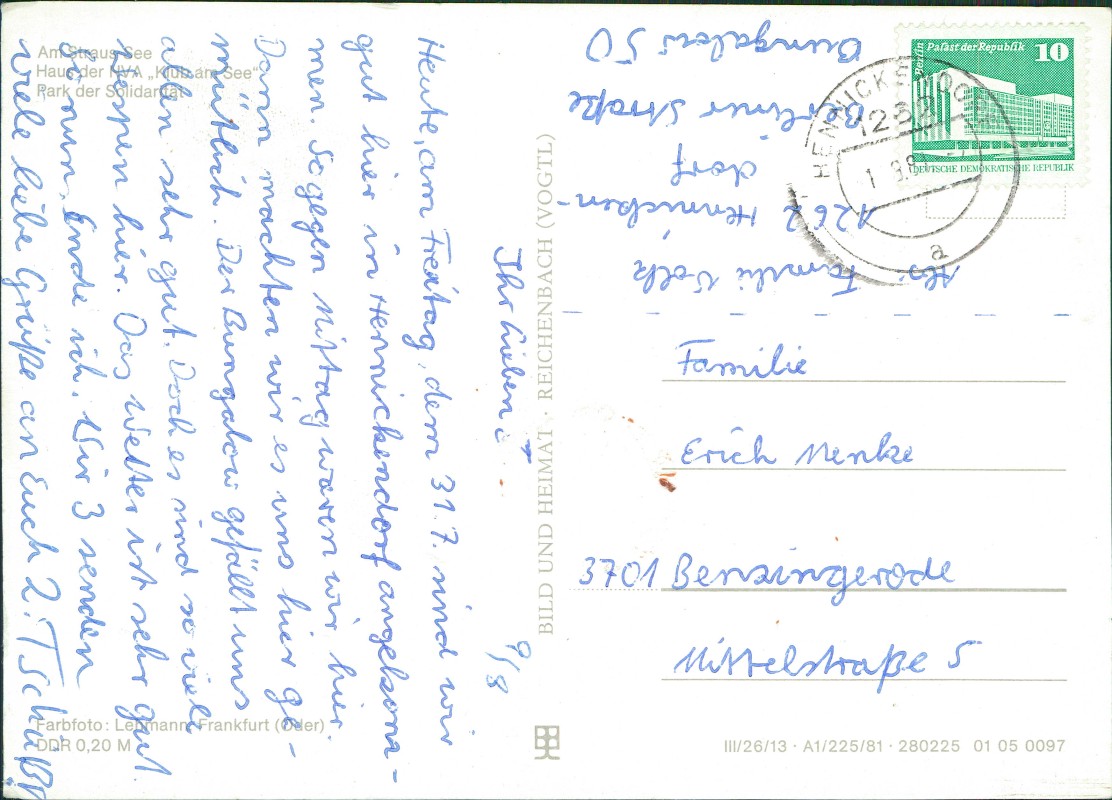 Am Straus-See
Haus der NVA „Klub am See“
Park der Solidarität
Ihr Lieben!
Heute, am Freitag, dem 31.7. sind wir
gut hier in Hennickendorf angekom-
men. Gegen Mittag waren wir hier.
Dann machten wir es uns hier ge-
mütlich. Der Bungalow gefällt uns
allen sehr gut. Doch es sind so viele
Wespen hier. Das Wetter ist sehr gut.
So nun, Ende ich. Wir 3 senden
viele liebe Grüße an Euch 2. Tschüß!
Farbfoto: Lehmann, Frankfurt (Oder)
DDR 0,20 M
BILD UND HEIMAT · REICHENBACH (VOGTL)
Abs. Familie Volk
1262 Hennicken-
dorf
Berliner Straße
Bungalow 50
Berlin Palast der Republik
10
DEUTSCHE DEMOKRATISCHE REPUBLIK
HENNICKENDORF
1262
a
Familie
Erich Menke
3701 Benzingerode
Mittelstraße 5
III/26/13 · A1/225/81 · 280225 01 05 0097